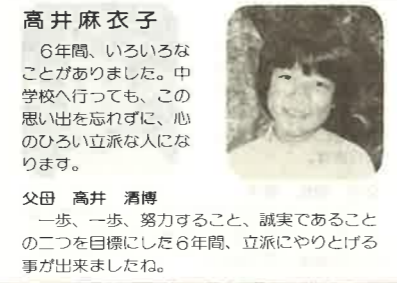 高井麻衣子
6年間、いろいろな
ことがありました。中
学校へ行っても、この
思い出を忘れずに、心
のひろい立派な人にな
ります。
父母 高井 清博
一歩、一歩、努力すること、誠実であること
の二つを目標にした6年間、立派にやりとげる
事が出来ましたね。